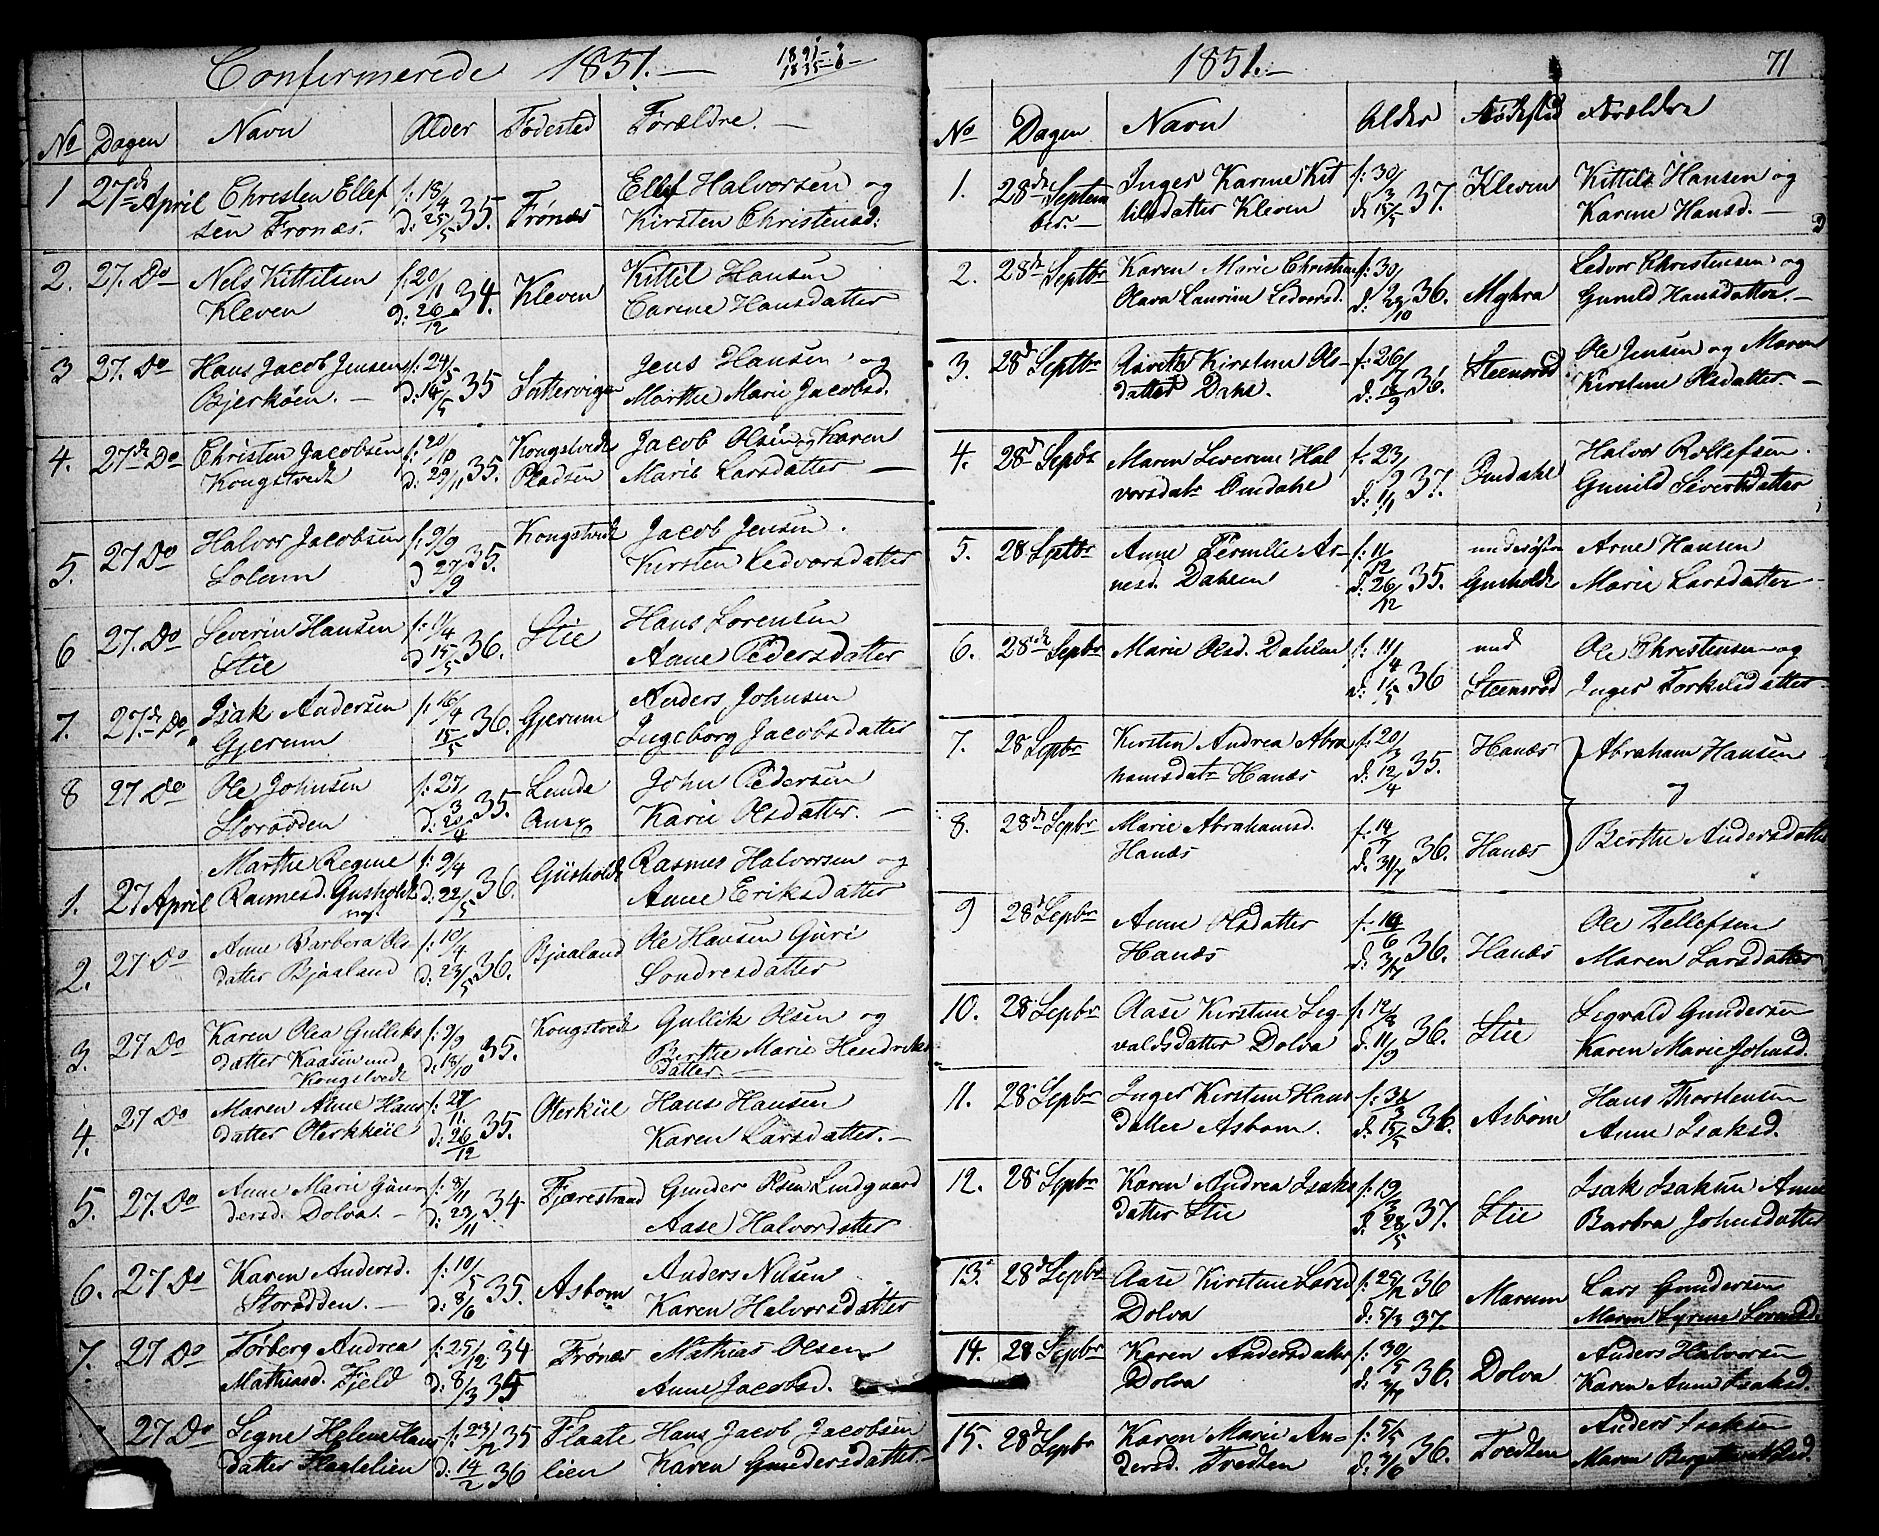 Confirmerede 1851.—
1891-
1835-6-
No Dagen Navn Alder Fødested Forældre.—
1 27de April Christen Ellef f: 18/4 35. Frønæs Ellef Halvorsen og
sen Frønæs. d: 25/5 Kirsten Christensd.
2. 27. Do Nels Kittilsen f: 20/11 34. Kleven Kittil Hansen
Kleven d: 26/12 Carine Hansdatter
3 27. Do Hans Jacob Jensen f: 24/3 35 Sætervigen Jens Hansen og
Bjerkøen.— d: 14/5 Marthe Marie Jacobsd.
4. 27de Do Christen Jacobsen f: 20/10 35. Kongstvedt Jacob Olsen og Karen
Kongstvedt d: 29/11 Pladsen Marie Larsdatter —
5. 27 Do Halvor Jacobsen f: 9/9 35. Kongstvedt Jacob Jensen.
Solem d 27/9 Kirsten Ledvorsdatter
6 27. Do Severin Hansen f: 11/4 36. Stie Hans Sorensen
Stie d 15/5 Anne Pedersdatter
7. 27.de Do Isak Andersen f: 16/4 36. Gjerum Anders Johnsen
Gjerum 15/5 Ingeborg Jacobsdatter
8 27 Do Ole Johnsen f: 27/3 35. Lunde John Pedersen
Storødden d: 20/4 Anex Karie Olsdatter.—
1. 27 April Marthe Regine f: 9/4 36. Gusholdt Rasmus Halvorsen og
Rasmusd. Gusholdt d: 22/5 Anne Eriksdatter
2. 27 Do Anne Barbera Ols f: 10/4 36. Bjaaland Ole Hansen Guri
datter Bjaaland d: 23/5 Sondresdatter
3. 27 Do Karen Olea Gulliks f: 9/9 35. Kongstvedt Gullik Olsen og
datter Kaasen und d: 18/10 Berthe Marie Hendriks
Kongstvedt datter.—
4. 27 Do Maren Anne Hans f: 27/11 35. Oterkiil Hans Hansen
datter Oterkkiil d: 26/12 Karen Larsdatter.—
5. 27. Do Anne Marie Gun f: 8/11 34 Fjærestrand Gunder Olsen Lindgaard
dersd. Dolva.— d: 23/11 Aase Halvorsdatter
6. 27 Do Karen Andersd. f: 10/5 35. Asbom Anders Nilsen
Storødden.— d: 8/6 Karen Halvorsdatter
7. 27 Do Torberg Andrea f: 25/12 34 Frønæs Mathias Olsen
Mathiasd. Fjeld d: 8/3 35 Anne Jacobsd.
27 Do Signe Helene Hans f: 23/12 35 Flaate Hans Jacob Jacobsen
datter Flaatelien d: 14/2 36 lien Karen Gundersdatter.—
1851.— 71
No Dagen Navn Alder Fødested Forældre
1. 28de Septem Inger Karine Kit f: 30/3 37. Kleven Kittil Hansen og
ber.— tilsdatter Kleven d: 15/5 Karine Hansd.—
2. 28de Septbr Karen Marie Christine f: 30/9 36. Myhra Ledvor Christensen og
Olava Laurine Ledvorsd. d: 29/10 Gunild Hansdatter.—
3. 28d Septbr Kirstine Ols- f: 26/7 36. Steensrød Ole Jensen og Maren
datter Dahl. d: 18/9 Kirstine Olsdatter.—
4. 28d Sepbr Maren Severine Hal f: 23/ 37. Omdahl Halvor Rollefsen.
vorsdatr Omdahl d: 11/ Gunild Sivertsdatter
5. 28 Septbr Anne Pernille Ar- f: 11/12 35. under østre Arne Hansen
nesd. Dahlen d: 26/12 Gusholdt Marie Larsdatter
6. 28de Sepbr Marie Olsd. Dahlen f: 11/4 36 und Ole Christensen og
d: 1/5 Steensrød Inger Torkilsdatter
7. 28 Sepbr Kirsten Andrea Abra f: 20/3 35. Hanæs Abraham Hansen
hamsdatr Hanæs d: 12/4 og
8. 28de Sepbr Marie Abrahamsd. f: 14/7 36. Hanæs Berthe Andersdatter
Hanæs d: 31/7
9 28d Sepbr Anne Olsdatter f: 14/6 36. Hanæs Ole Tellefsen
Hanæs d: 3/7 Maren Larsdatter
10. 28 Sepbr Aase Kirstine Seg f: 12/8 36. Stie Segvald Gundersen
valdsdatter Dolva d: 11/9 Karen Marie Johnsd.
11. 28 Sepbr Inger Kirstine Hans f: 31/3 36. Asbom Hans Thorstensen
datter Asbom. d: 15/5 Anne Isaksd.
12. 28 Sepbr Karen Andrea Isaks f: 19/3 37. Stie Isak Isaksen Anne
datter Stie d: 28/5 Barbra Johnsdatter
13. 28d Sepbr Aase Kirstine Larsd f: 25/12 36 Marum Lars Gundersen
Dolva d: 5/3 37. Maren Lyrene Lorentsd.
14. 28 Sepbr Karen Andersdatter f: 30/5 36. Dolva Anders Halvorsen
Dolva d: 3/7 Karen Anne Isaksd.
15. 28d Sepbr Karen Marie An- f: 5/5 36. Tvedten Anders Isaksen
dersd. Tvedten d: 3/6 Maren Bergitte Nilsd.